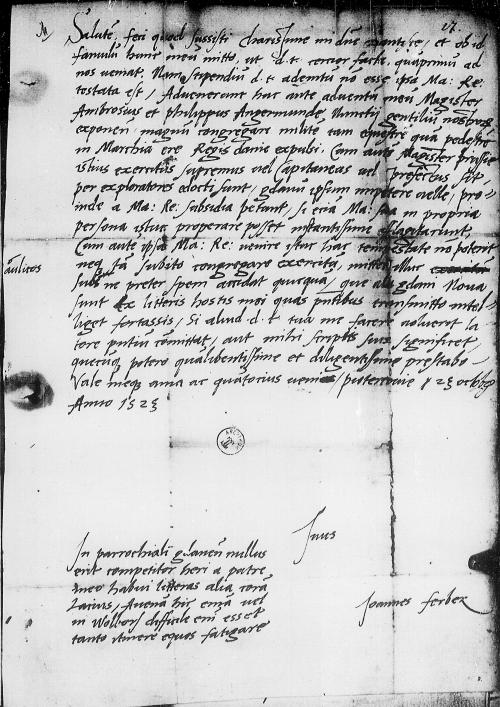 27.
Salutē. feci quod iussisti charissime mi dñe et ob id
famulū hunc meū mitto, ut d. t. certior facta, quaprimū ad
nos veniat. Num stipendiū d. t. ademtū no esse ipsa Ma: Re:
testata est, Advenerunt hac ante adventū meū Magister
Ambrosius et philippus Angermunde, Nuncij gentiliū nostrorū
exponēt magnū congregari milite tam equestre quā pedestre
in Marchia ere Regis danie expulsi, Cum autē Magister prusie
istius exercitus supremus vel Capitaneus vel prefectus sit,
per exploratores edocti sunt, gdanū ipsum impetere velle, pro-
inde a Ma: Re: subsidia petunt, si etiā Ma: sua in propria
persona istuc properare posset instantissime efflagitarunt,
Cum autē ipsa Ma: Re: venire istuc hac tempestate no poterit
neq tā subito congregare exercitū, mittet illuc
aulicos
suos ne preter spem accidat quicquā, que aūt gdani Nova
sunt Ex litteris hostis mei quas pntibus transmitto intel-
liget fortassis, Si aliud d. t. tua me facere voluerit la-
tore pntiū comittat, aut mihi scriptis suis significet,
quecūq potero qualibentissime et diligentissime prestabo
Vale meq ama ac quatocius veni, piotrcovie 23 octobr
Anno 1523
Tuus
In parrochiali gdanen nullus
erit competitor heri a patre
meo habui litteras alia corā
latius, Avena hic emā vel
in Wolborz difficile eni esset
tanto itinere equos fatigare
Joannes ferber